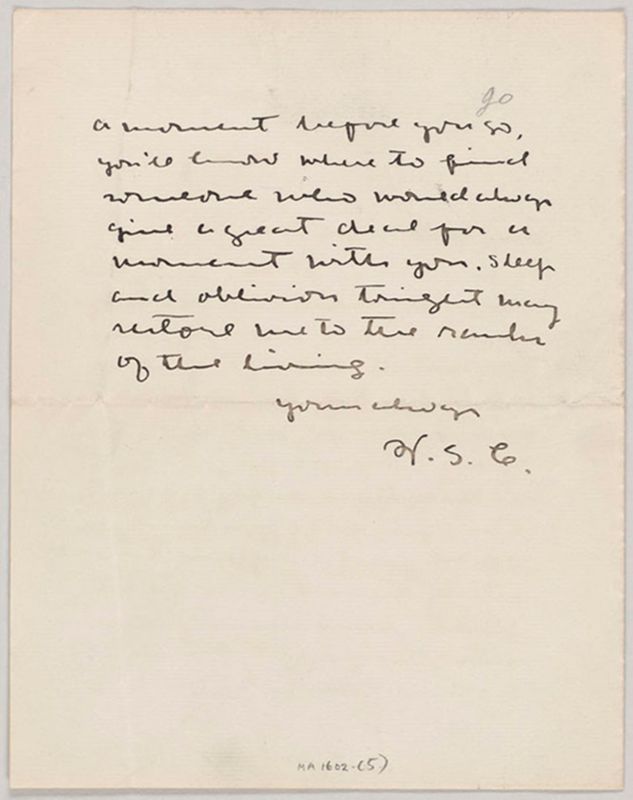 go
a moment before you go,
you'll know where to find
someone who would always
give a great deal for a
moment with you. Sleep
and oblivion tonight may
restore me to the ranks
of the living.
yours always
W. S. C.
MA 1602-(5)